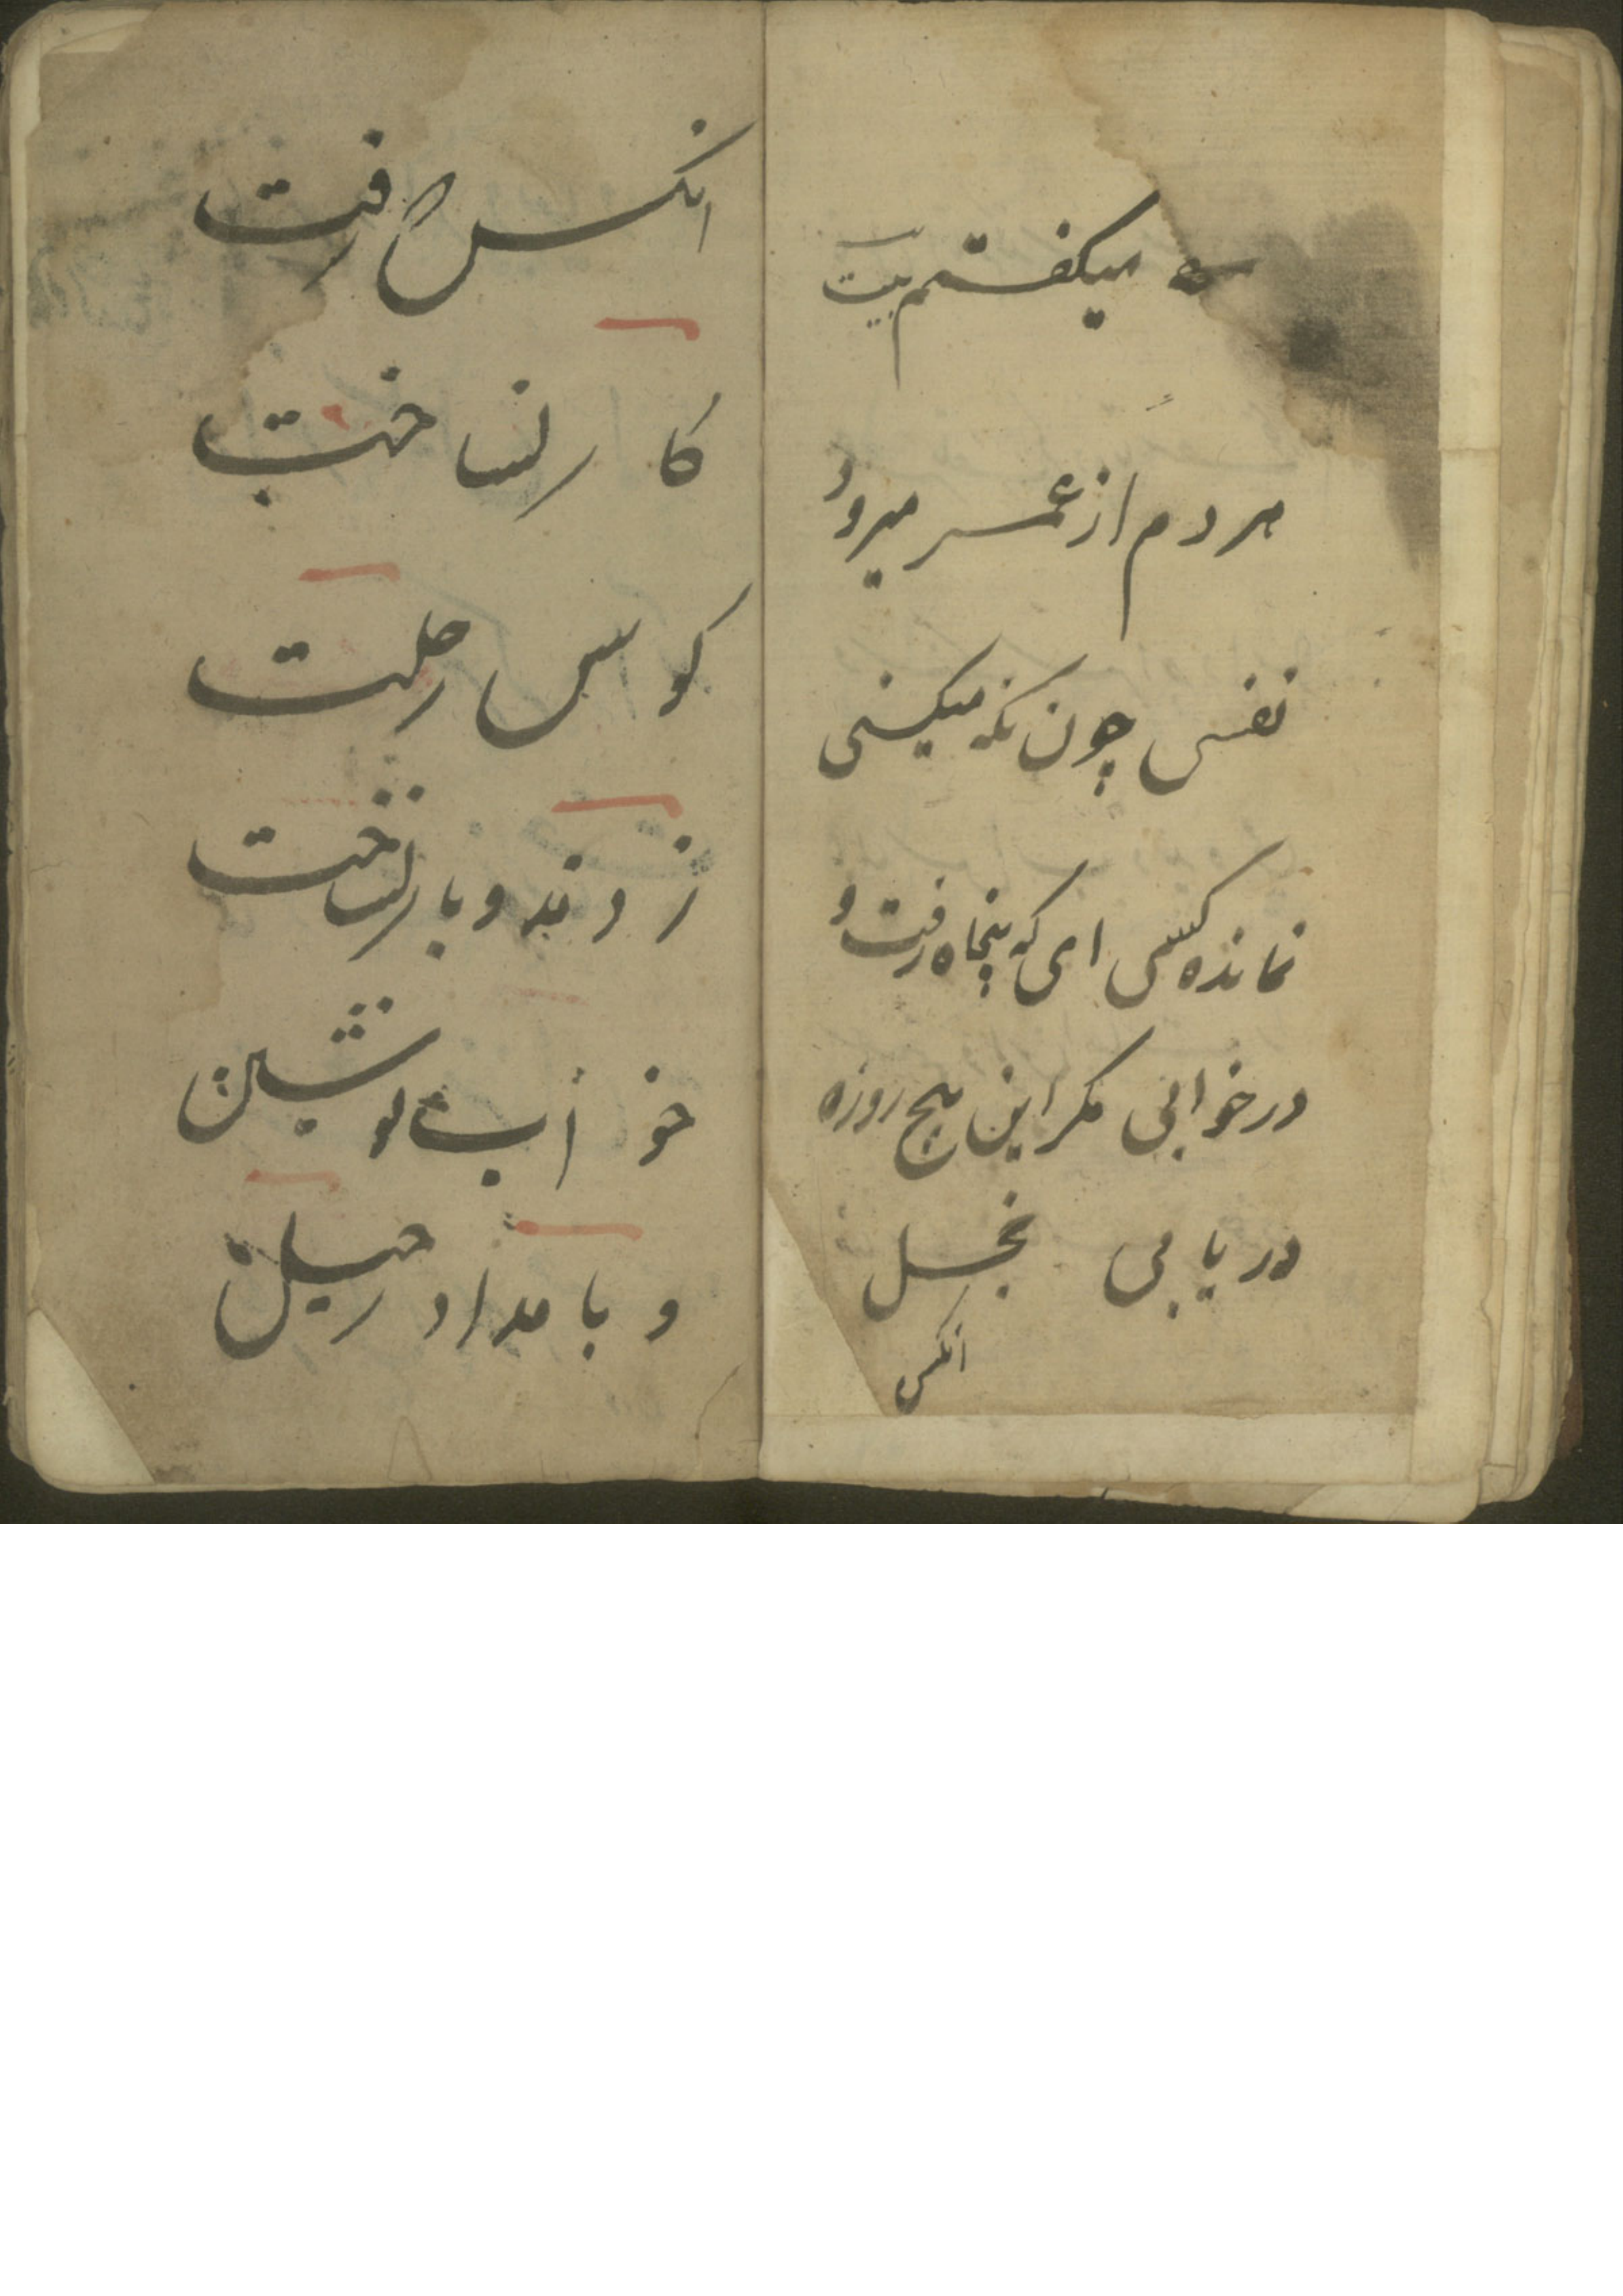 میکفتم بیت
هر دم از عمر میرود
نفسی چون نکه میکنی
نمانده کسی ای که پنجاه رفت و
در خوابی مکر این پنج روزه
دریابی خجل
انکس
انکس که رفت
کار نساخت
کوس رحلت
زدند و بار نساخت
خواب نوشین
و بامداد رحیل